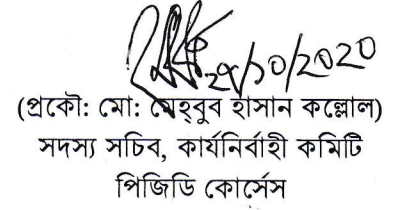 ২৭/১০/২০২০
(প্রকৌ: মো: মেহ্‌বুব হাসান কল্লোল)
সদস্য সচিব, কার্যনির্বাহী কমিটি
পিজিডি কোর্সেস